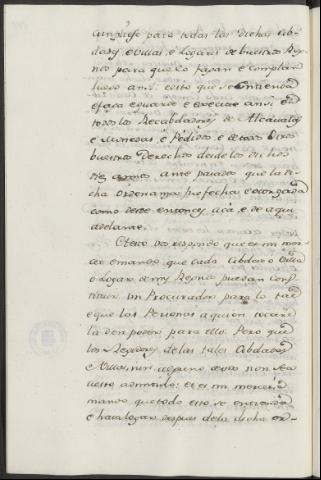 cumplese para todas las dichas cib-
dades, e villas, e logares de vuestros Rey-
nos para que lo fagan e complan
luego ansi: esto que se entienda
e faga e guarde e execute ansi en
todos los Recabdadores de Alcavalas
e Monedas, e Pedidos e de todos otros
vuestros derechos desde los dichos
diez annos ante pasados que la di-
cha Ordenanza fue fecha e otorgada
como desde entonces acá, e de aqui
adelante.
Otrosi vos respondo que es mi mer-
ced e mando, que cada cibdad o villa
o logar de mis Reynos puedan cons-
tituir un Procurador para lo tal
e que las Personas a quien tocare
le den poder para ello. Pero que
los Regidores de las tales cibdades
e villas, nin alguno dellos non sea
a esto admitido: et es mi merced, e
mando que todo esto se entienda
e haia logar despues de la dicha or-